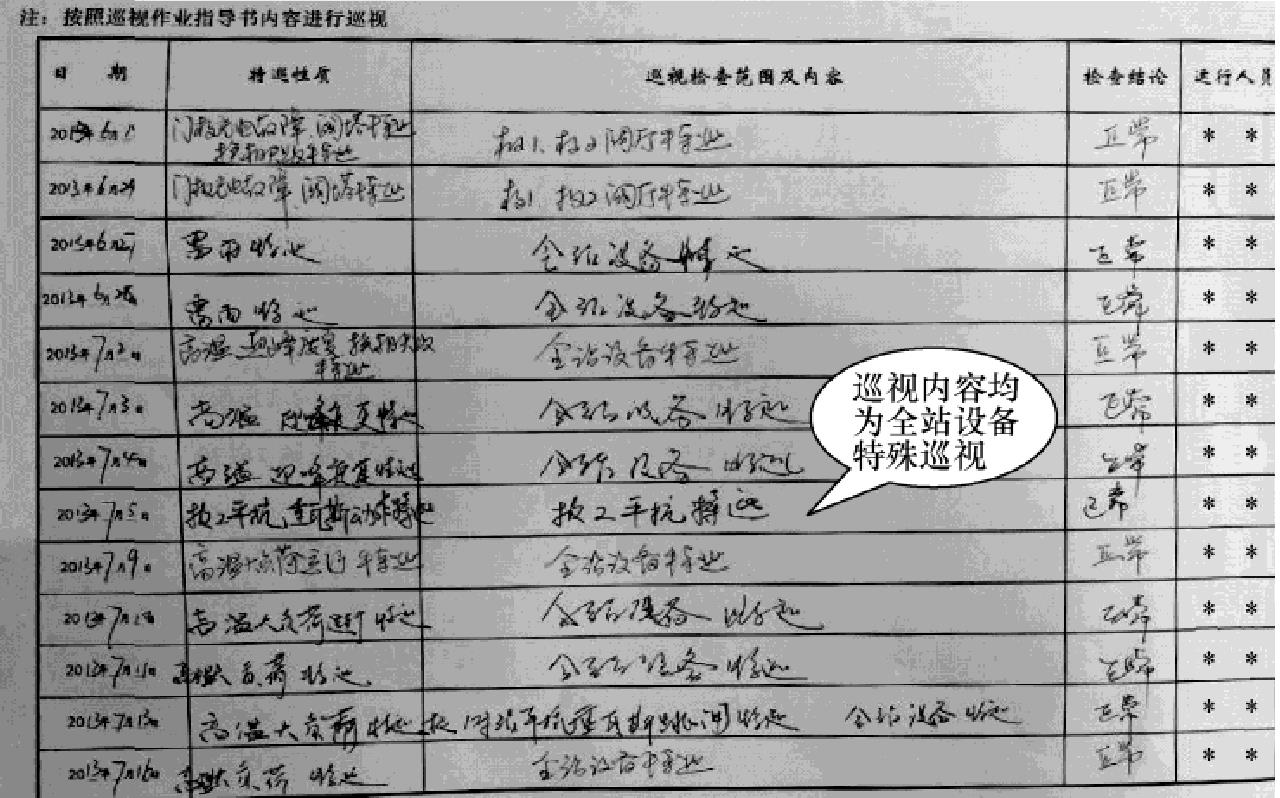 注：按照巡视作业指导书内容进行巡视
日 期 特巡性质 巡视检查范围及内容 检查结论 运行人员
2013年6月 极1、极2阀厅特巡 正常 * *
2013年6月 极1 极2阀厅特巡 正常 * *
2013年6月 雷雨特巡 全站设备特巡 正常 * *
2013年6月 雷雨特巡 全站设备特巡 正常 * *
2013年7月2日 高温 特巡 全站设备特巡 正常 * *
2013年7月3日 高温 迎峰度夏特巡 全站设备特巡 正常 * *
2013年7月4日 高温 迎峰度夏特巡 全站设备特巡 正常 * *
2013年7月5日 极2平抗 特巡 极2平抗特巡 正常 * *
2013年7月9日 高温大负荷运行特巡 全站设备特巡 正常 * *
2013年7月 高温大负荷运行特巡 全站设备特巡 正常 * *
2013年7月 高温大负荷特巡 全站设备特巡 正常 * *
2013年7月13日 高温大负荷特巡 全站设备特巡 正常 * *
2013年7月16日 高温大负荷特巡 全站设备特巡 正常 * *
巡视内容均
为全站设备
特殊巡视